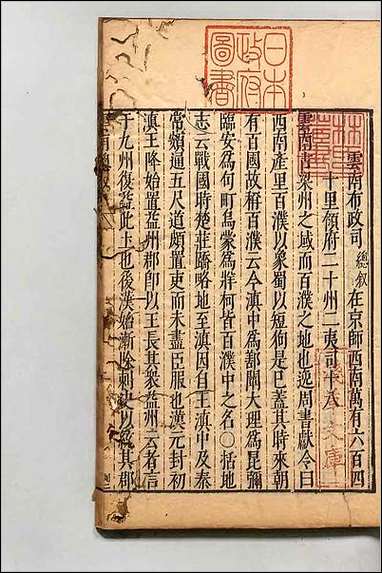 日本
政府
圖書
雲南布政司 總叙 在京師西南萬有六百四
十里領府二十州二夷司十八
雲南古梁州之域而百濮之地也逸周書獻令曰
西南產里百濮以象蜀以短狗是已蓋其時來朝
有百國故稱百濮云今滇中爲鄯闡大理爲昆彌
臨安爲句町烏蒙爲牂柯皆百濮中之名○括地
志云戰國時楚莊蹻略地至滇因自王滇中及秦
常頞通五尺道頗置吏而未盡臣服也漢元封初
滇王降始置益州郡卽以王長其衆益州云者言
于九州復益此土也後漢始漸除剌史以爲其郡